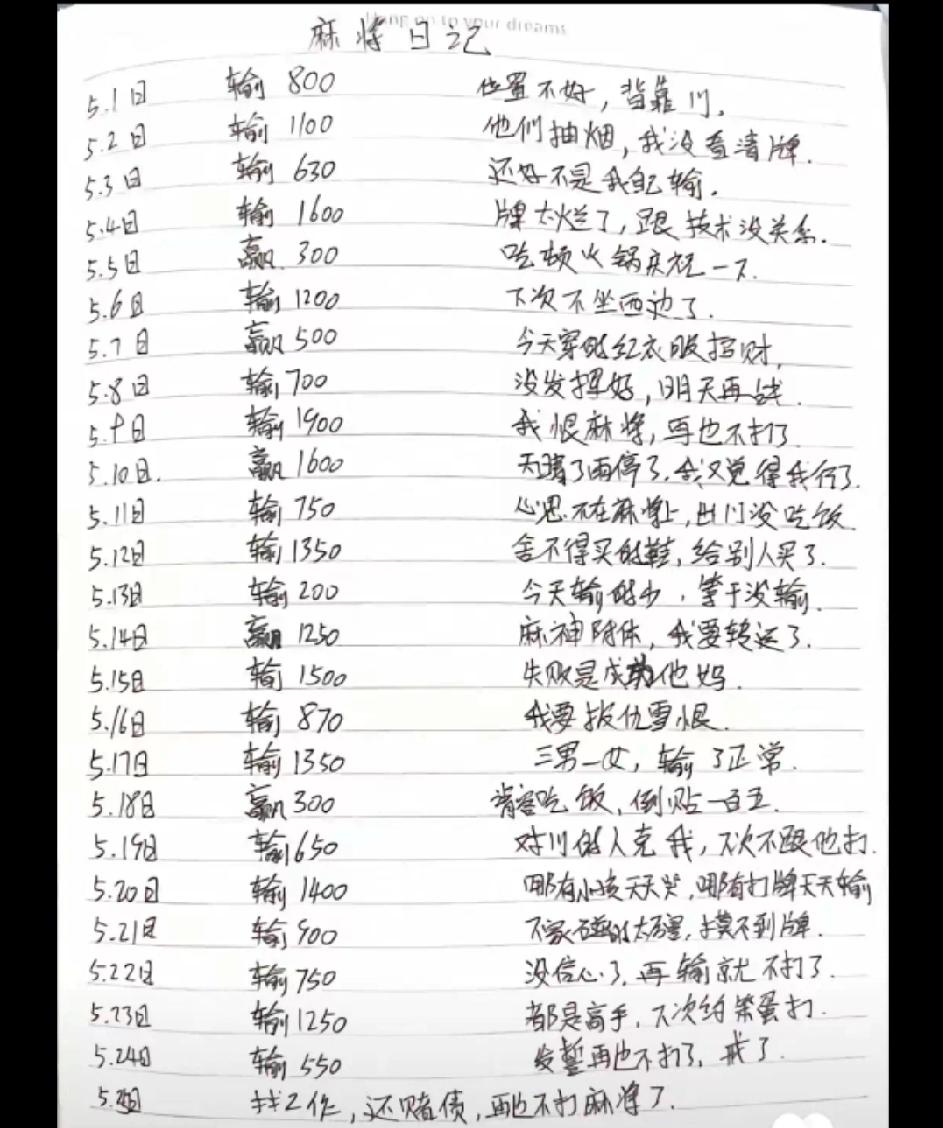 Hang on to your dreams
麻将日记
5.1日 输 800 位置不好，背靠门。
5.2日 输 1100 他们抽烟，我没看清牌.
5.3日 输 630 还好不是我自己输.
5.4日 输 1600 牌太烂了，跟技术没关系.
5.5日 赢 300 吃顿火锅庆祝一下.
5.6日 输 1200 下次不坐西边了.
5.7日 赢 500 今天穿的红衣服招财,
5.8日 输 700 没发挥好，明天再战.
5.9日 输 1900 我恨麻将，再也不打了.
5.10日. 赢 1600 天晴了雨停了，我又觉得我行了.
5.11日 输 750 心思不在麻将上，出门没吃饭.
5.12日 输 1350 舍不得买的鞋，给别人买了.
5.13日 输 200 今天输的少，等于没输.
5.14日 赢 1250 麻神附体，我要转运了.
5.15日 输 1500 失败是成功他妈.
5.16日 输 870 我要报仇雪恨.
5.17日 输 1350 三男一女，输了正常.
5.18日 赢 300 请客吃饭，倒贴一百五.
5.19日 输 650 对门的人克我，下次不跟他打.
5.20日 输 1400 哪有小孩天天哭，哪有打牌天天输
5.21日 输 900 下家碰的太厉害，摸不到牌.
5.22日 输 750 没信心了，再输就不打了.
5.23日 输 1250 都是高手，下次约笨蛋打.
5.24日 输 550 发誓再也不打了，戒了.
5.25日 找工作，还赌债，再也不打麻将了.